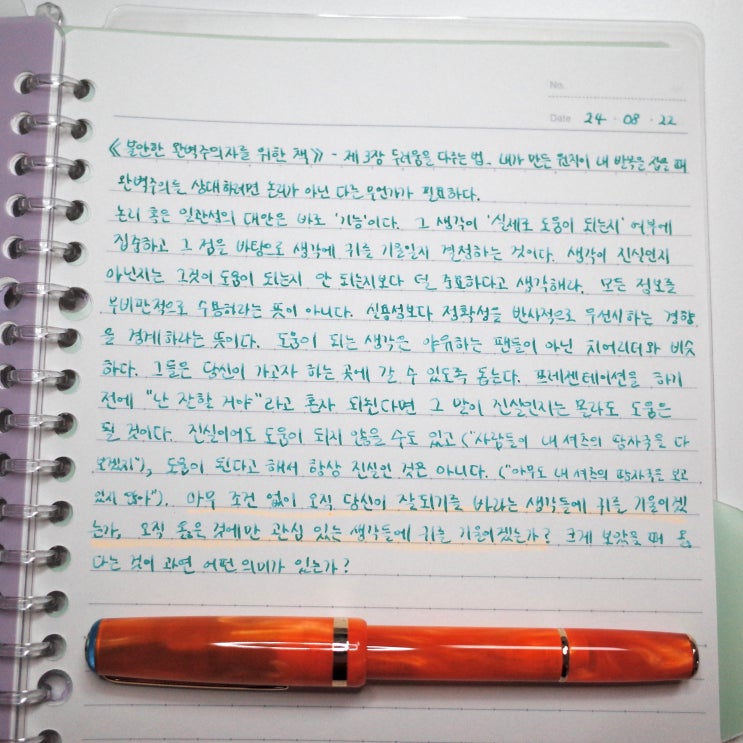 No.
Date 24 · 08 · 22
《불안한 완벽주의자를 위한 책》 - 제 3장 두려움을 다루는 법. 내가 만든 원칙이 내 발목을 잡을 때
완벽주의를 상대하려면 논리가 아닌 다른 무언가가 필요하다.
논리 혹은 일관성의 대안은 바로 '기능'이다. 그 생각이 '실제로 도움이 되는지' 여부에
집중하고 그 점을 바탕으로 생각에 귀를 기울일지 결정하는 것이다. 생각이 진실인지
아닌지는 그것이 도움이 되는지 안 되는지보다 덜 중요하다고 생각해라. 모든 정보를
무비판적으로 수용하라는 뜻이 아니다. 실용성보다 정확성을 반사적으로 우선시하는 경향
을 경계하라는 뜻이다. 도움이 되는 생각은 야유하는 팬들이 아닌 치어리더와 비슷
하다. 그들은 당신이 가고자 하는 곳에 갈 수 있도록 돕는다. 프레젠테이션을 하기
전에 "난 잘할 거야"라고 혼자 되뇐다면 그 말이 진실인지는 몰라도 도움은
될 것이다. 진실이어도 도움이 되지 않을 수도 있고 ("사람들이 내 셔츠의 땀자국을 다
보겠지"), 도움이 된다고 해서 항상 진실인 것은 아니다. ("아무도 내 셔츠의 땀자국을 보고
있지 않아"). 아무 조건 없이 오직 당신이 잘되기를 바라는 생각들에 귀를 기울이겠
는가, 오직 옳은 것에만 관심 있는 생각들에 귀를 기울이겠는가? 크게 보았을 때 옳
다는 것이 과연 어떤 의미가 있는가?